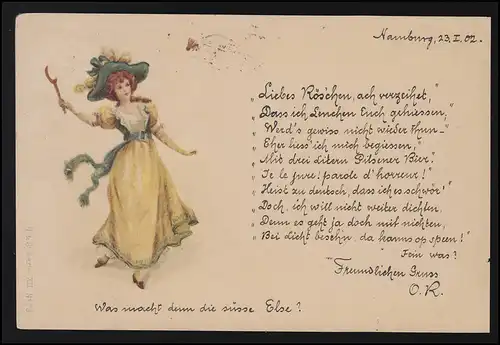 Hamburg, 23.I.02.
"Liebes Röschen, ach verzeihet,"
"Dass ich Lenchen Euch geheissen,"
"Werd's gewiss nicht wieder thun—"
"Eher liess ich mich begiessen,"
"Mit drei Litern Pilsener Bier."
"Je le jure! parole d'horreur!"
"Heist zu deutsch, dass ich es schwör'"
"Doch, ich will nicht weiter dichten,
"Denn es geht ja doch mit nichten,
"Bei Licht beseh'n, da kanns op speen!"
Fein was?
Freundlichen Gruss
O.R.
Was macht denn die süsse Else?